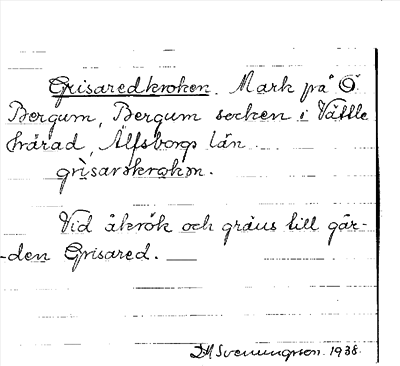 Grisaredkroken. Mark på Ö.
Bergum, Bergum socken i Vättle
härad, Älfsborgs län
grisarskrokən.
Vid åkrök och gräns till går-
-den Grisared. —
D.A. Svenningson. 1938.